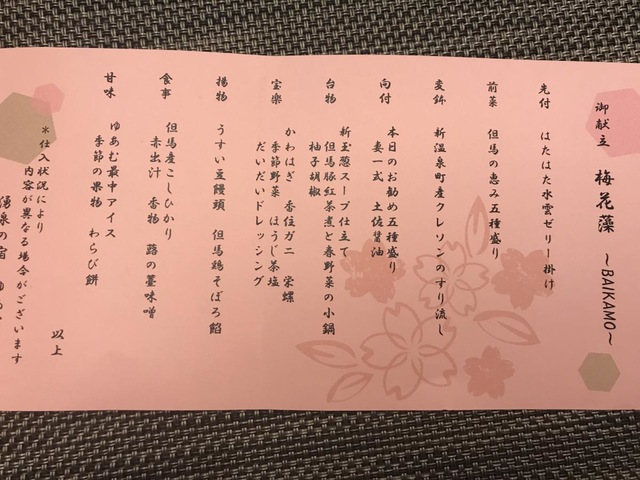 御献立 梅花藻 ～BAIKAMO～
先付 はたはた水雲ゼリー掛け
前菜 但馬の恵み五種盛り
変鉢 新温泉町産クレソンのすり流し
向付 本日のお勧め五種盛り
妻一式 土佐醤油
台物 新玉葱スープ仕立て
但馬豚紅茶煮と春野菜の小鍋
柚子胡椒
宝楽 かわはぎ 香住ガニ 栄螺
季節野菜 ほうじ茶塩
だいだいドレッシング
揚物 うすい豆饅頭 但馬鶏そぼろ餡
食事 但馬産こしひかり
赤出汁 香物 蕗の薹味噌
甘味 ゆあむ最中アイス
季節の果物 わらび餅
以上
＊仕入状況により
内容が異なる場合がございます
湧泉の宿